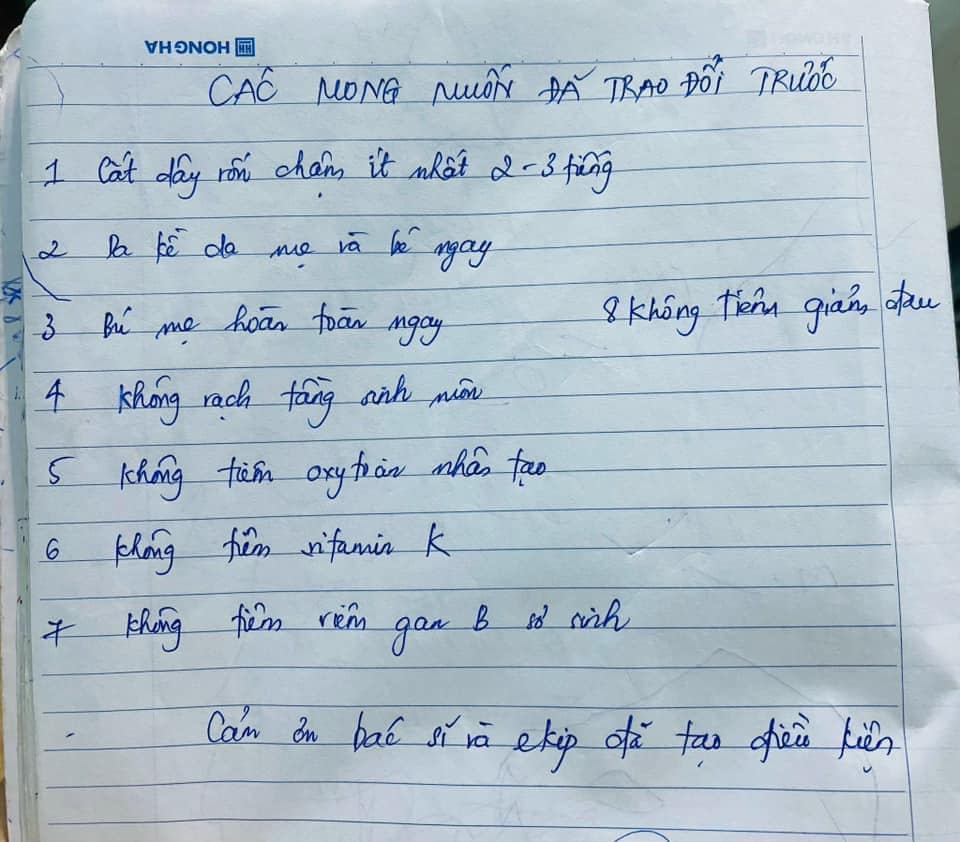 HONG HA
CÁC MONG MUỐN ĐÃ TRAO ĐỔI TRƯỚC
1 Cắt dây rốn chậm ít nhất 2-3 tiếng
2 Da kề da mẹ và bé ngay
3 Bú mẹ hoàn toàn ngay
8 Không tiêm giảm đau
4 Không rạch tầng sinh môn
5 Không tiêm oxytoxin nhân tạo
6 Không tiêm vitamin K
7 Không tiêm viêm gan B sơ sinh
Cảm ơn bác sĩ và ekip đã tạo điều kiện